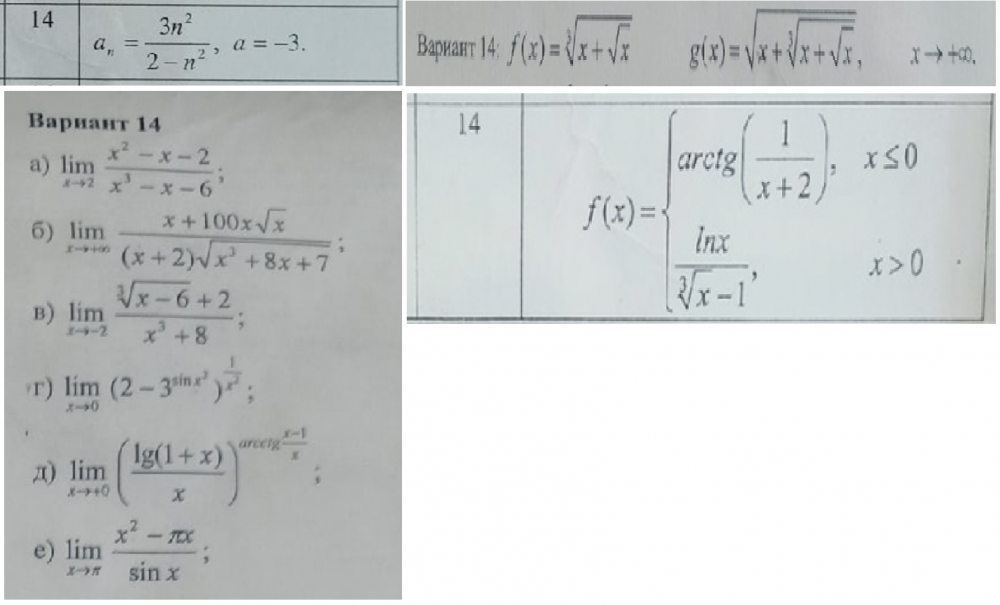 14 a_n = 3n² / (2 − n²), a = −3.
Вариант 14: f(x) = ∛(x + √x) g(x) = √(x + ∛(x + √x)), x → +∞.
Вариант 14
а) lim x→2 (x² − x − 2) / (x³ − x − 6);
б) lim x→+∞ (x + 100x√x) / ((x + 2)√(x³ + 8x + 7));
в) lim x→−2 (∛(x − 6) + 2) / (x³ + 8);
г) lim x→0 (2 − 3^(sin x²))^(1/x²);
д) lim x→+0 (lg(1 + x) / x)^(arcctg (x−1)/x);
е) lim x→π (x² − πx) / sin x;
14 f(x) = { arctg(1 / (x + 2)), x ≤ 0
lnx / (∛x − 1), x > 0 .